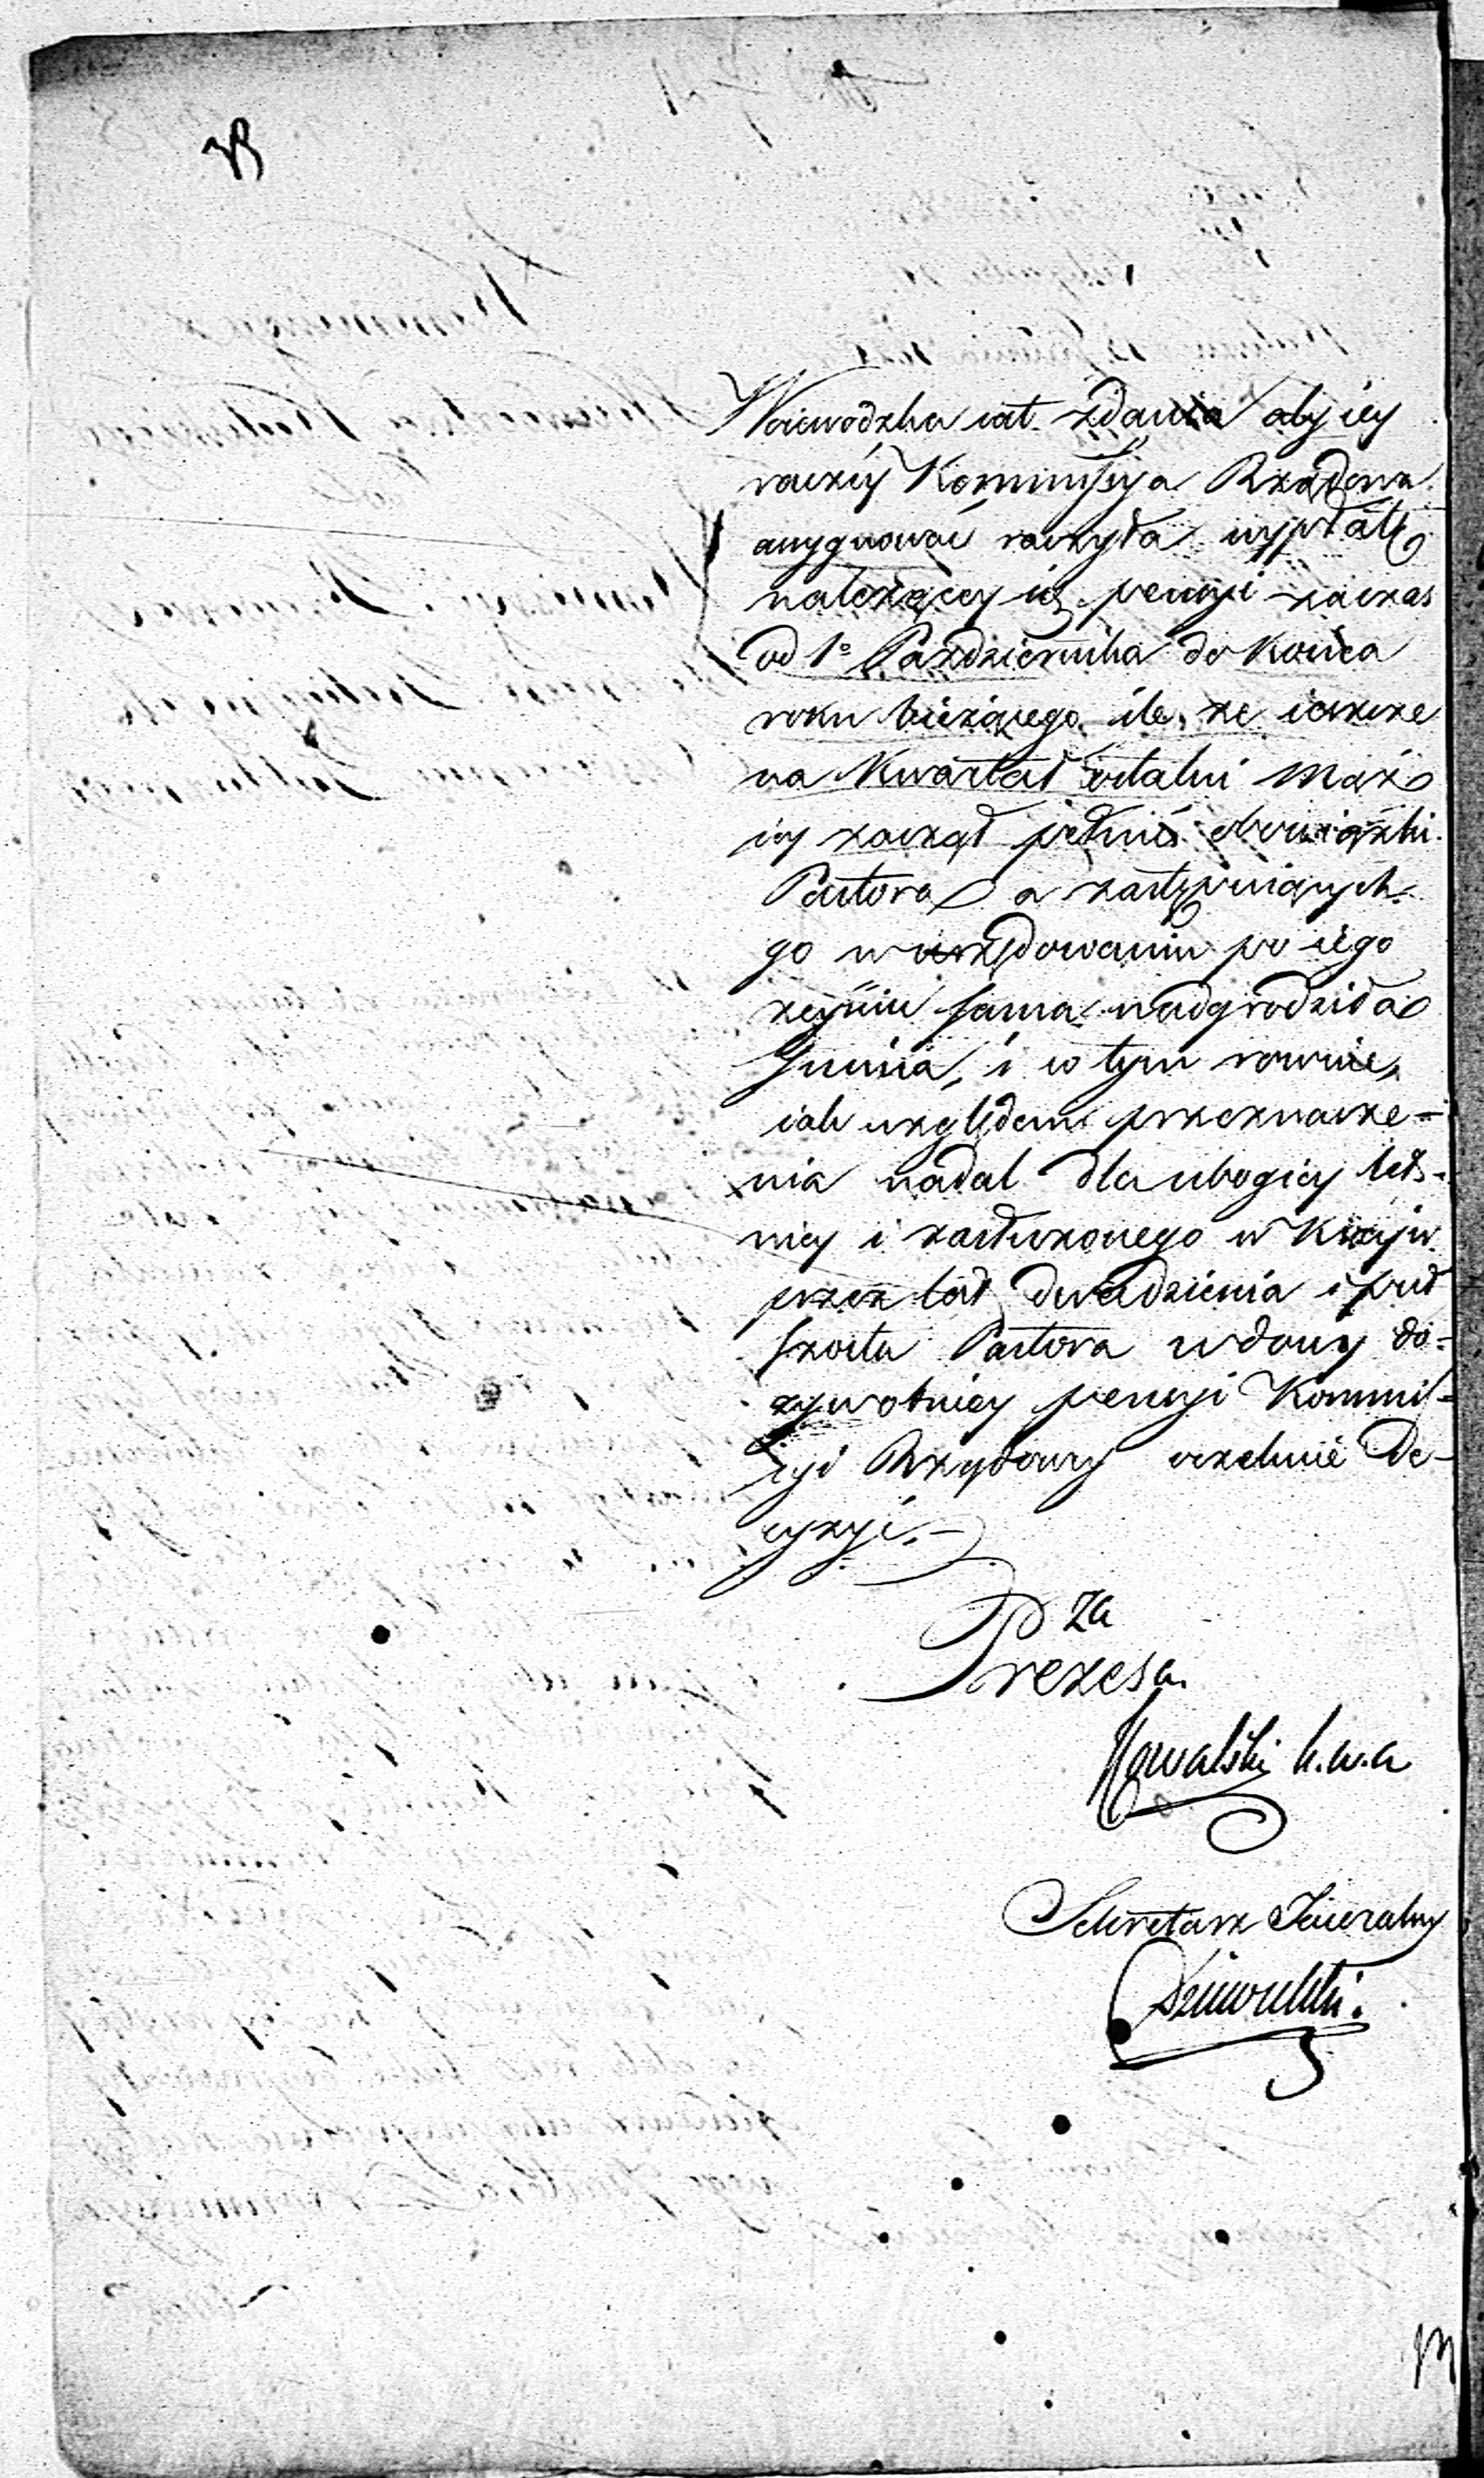 Woiewodzka iest zdania aby iey
raczéy Kommissya Rządowa
assygnować raczyła wypłatę
należącey iéy pensyi za czas
od 1º Pazdziernika do Końca
roku bieżącego, ile, że ieszcze
na Kwartał ostatni mąż
iey zaczął pełnić obowiązki
Pastora a zastępuiących
go w urzędowaniu po iégo
zejściu sama nadgrodziła
Gmina, i w tym równie,
iak względem przeznacze=
nia nadal dla ubogiey
i zasłużonego w Kraju
przez lat dwadzieścia i pół
szosta Pastora wdowy do=
zywotniey pensyi Kommis=
syi Rządowey oczekuie De-
cyzyi.-
Za
Prezesa
Kowalski
Sekretarz Jeneralny